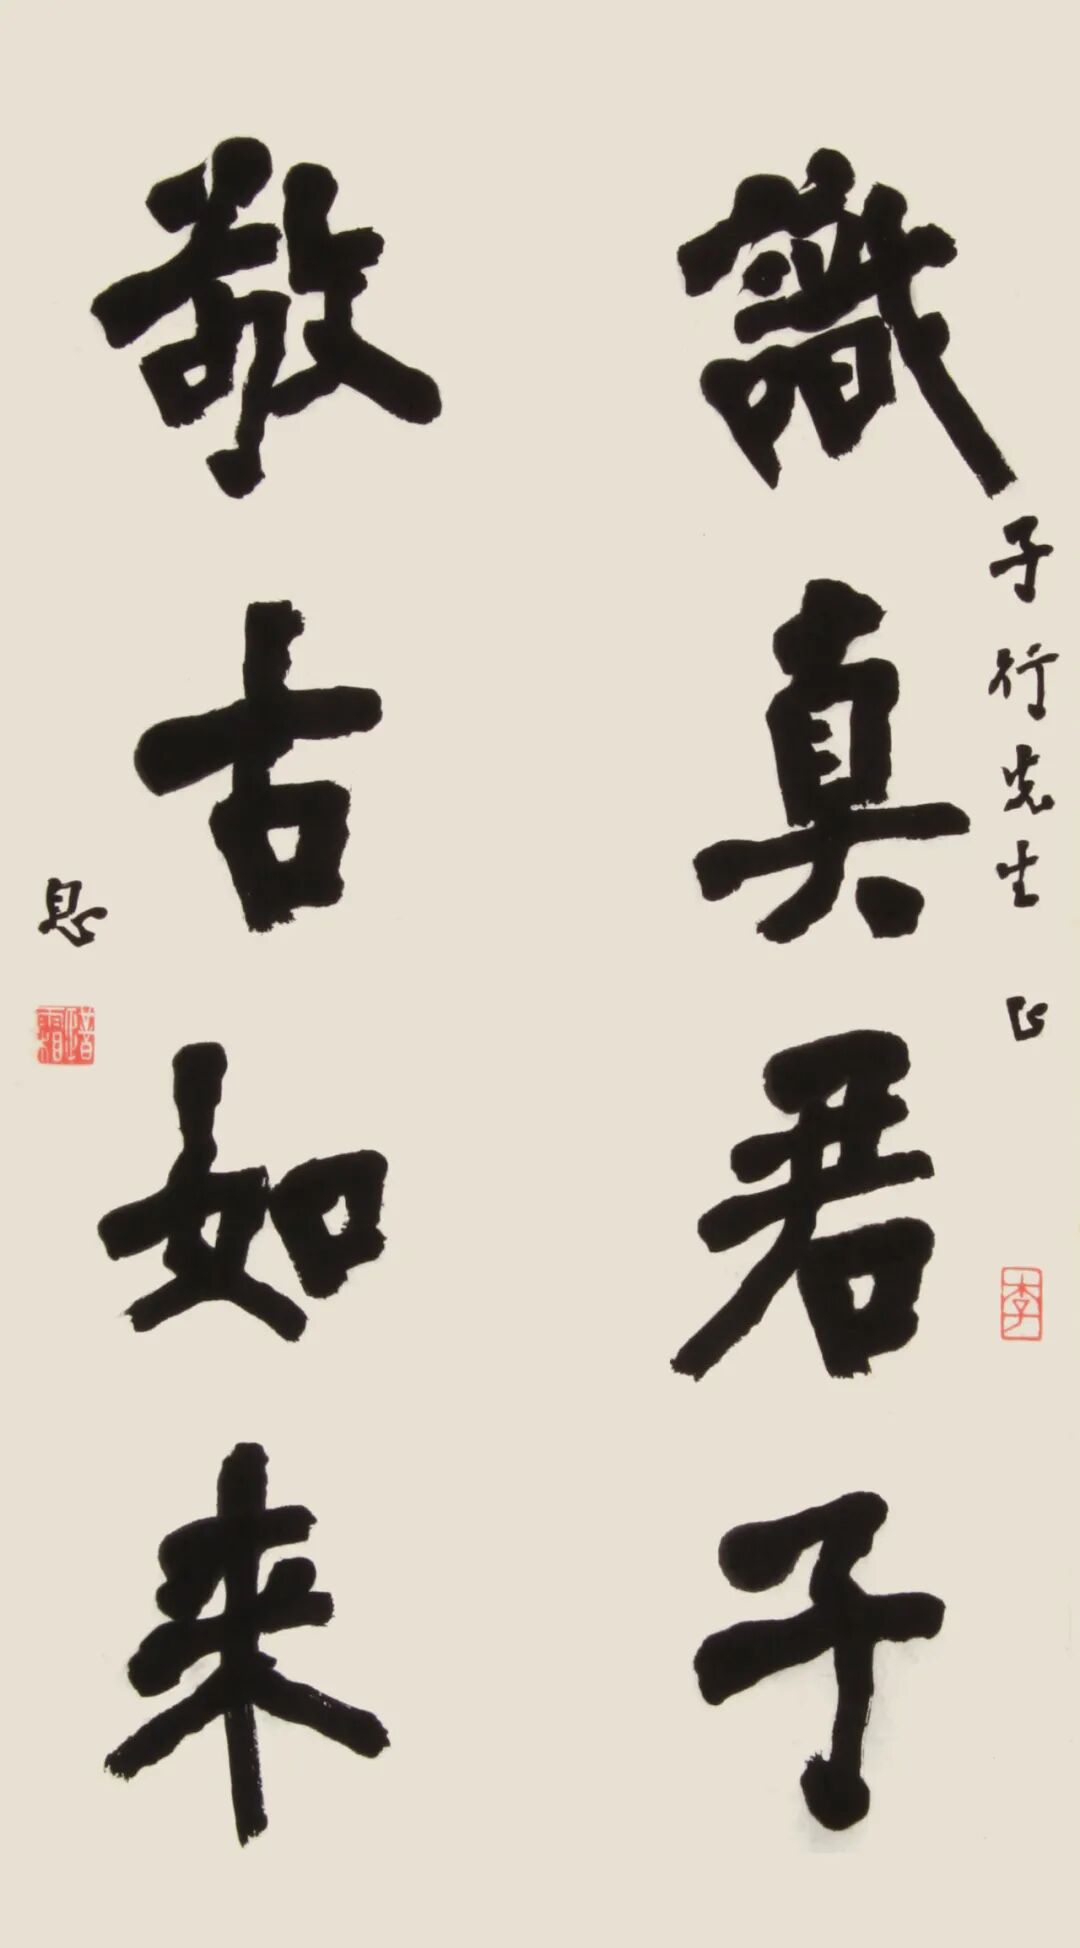 子行先生 正
識真君子
敬古如来
息
李